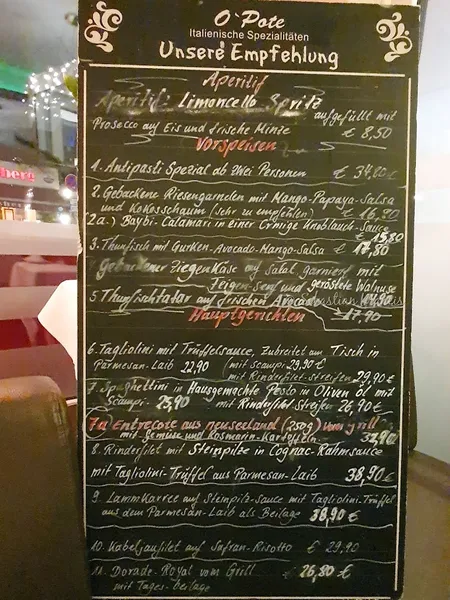 O'Pote
Italienische Spezialitäten
Unsere Empfehlung
Aperitif
Aperitif: Limoncello Spritz
aufgefüllt mit
Prosecco auf Eis und frische Minze € 8,50
Vorspeisen
1. Antipasti Spezial ab zwei Personen € 34,80
2. Gebackene Riesengarnelen mit Mango-Papaya-Salsa
und Kokosschaum (sehr zu empfehlen) € 16,80
2a.) Baybi-Calamari in einer Crmige Knoblauch-Sauce
15,80
3. Thunfisch mit Gurken-Avocado-Mango-Salsa € 17,80
Gebackener Ziegenkäse auf Salat, garniert mit
Feigen-Senf und geröstete Walnuse
14,90
5 Thunfischtatar auf frischen Avocado
17,90
Hauptgerichten
6. Tagliolini mit Trüffelsauce, Zubreitet am Tisch in
Parmesan-Laib 22,90 (mit scampi 29,90 €
mit Rinderfilet-Streifen 29,90 €
7. Spaghettini in Hausgemachte Pesto in Oliven öl mit
Scampi- 25,90 mit Rinderfilet Streifen 26,90 €
7a Entrecote aus neuseeland (250g) vom grill
mit Gemüse und Rosmarin-Kartoffeln 32,90
8. Rinderfilet mit Steinpilze in Cognac-Rahmsauce
mit Tagliolini-Trüffel aus Parmesan-Laib 38,90 €
9. Lammkarree auf Steinpilz-Sauce mit Tagliolini-Trüffel
aus dem Parmesan-Laib als Beilage 38,90 €
10. Kabeljaufilet auf Safran-Risotto € 29,90
11. Dorade-Royal vom Grill € 26,80 €
mit Tages-beilage